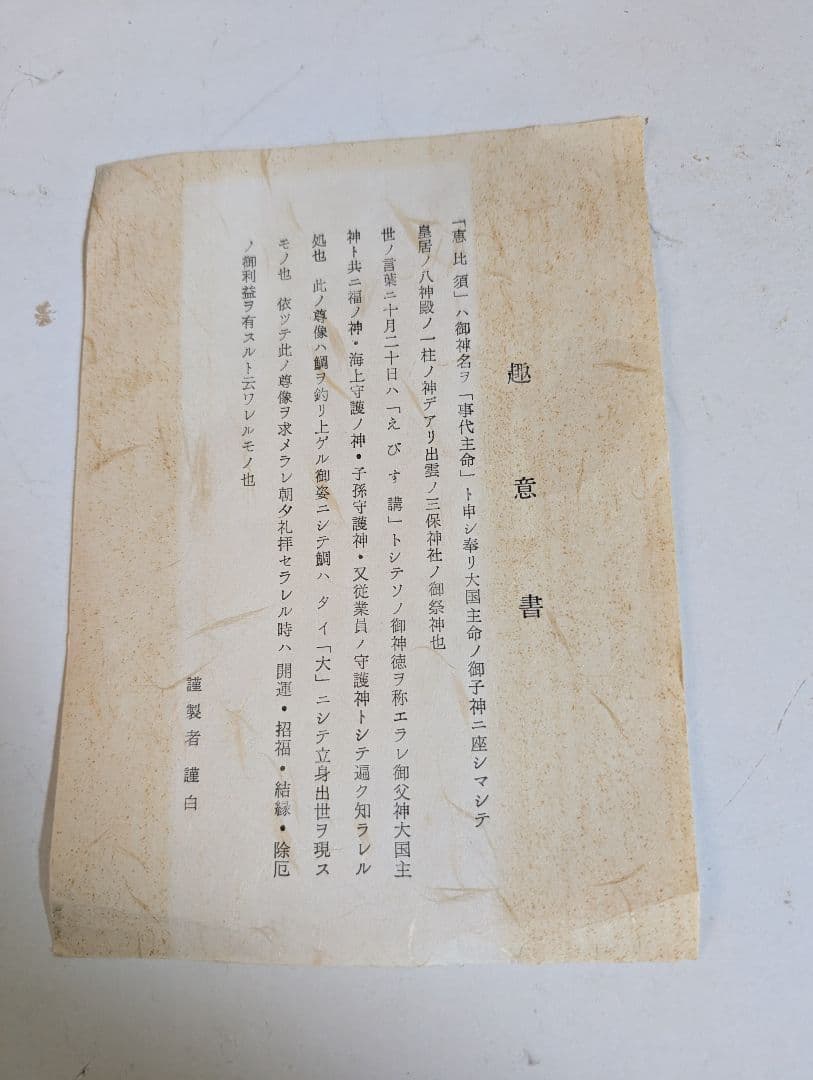 趣意書
「恵比須」ハ御神名ヲ「事代主命」ト申シ奉リ大国主命ノ御子神ニ座シマシテ
皇居ノ八神殿ノ一柱ノ神デアリ出雲ノ三保神社ノ御祭神也
世ノ言葉ニ十月二十日ハ「えびす講」トシテソノ御神徳ヲ称エラレ御父神大国主
神ト共ニ福ノ神・海上守護ノ神・子孫守護神・又従業員ノ守護神トシテ遍ク知ラレル
処也 此ノ尊像ハ鯛ヲ釣リ上ゲル御姿ニシテ鯛ハ タイ「大」ニシテ立身出世ヲ現ス
モノ也 依ッテ此ノ尊像ヲ求メラレ朝夕礼拝セラレル時ハ 開運・招福・結縁・除厄
ノ御利益ヲ有スルト云ワレルモノ也
謹製者 謹白